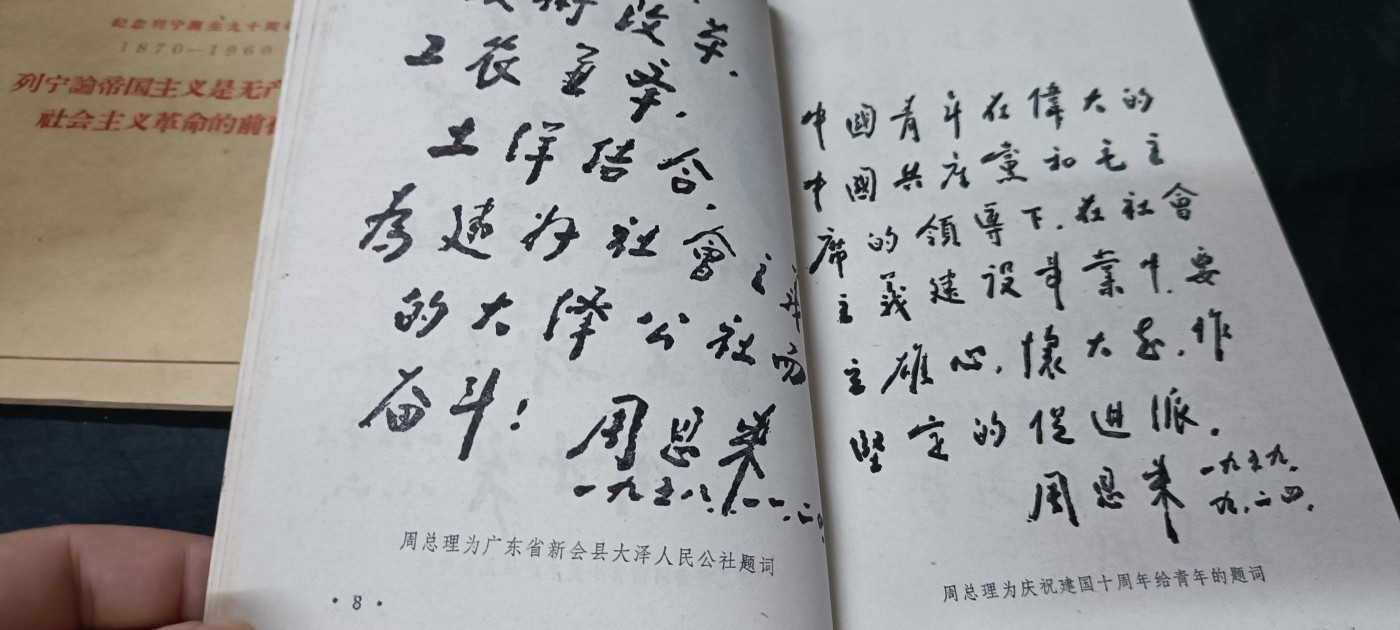 纪念列宁誕生九十周
1870—1960
列宁論帝国主义是无产
社会主义革命的前
術改革.
工农並举.
土洋结合.
為建好社會主義
的大泽公社而
奋斗!
周恩来
一九五八.一一.二
周总理为广东省新会县大泽人民公社题词
• 8 •
中國青年在偉大的
中國共产黨和毛主
席的領導下.在社會
主義建设事業中.要
立雄心.懷大志.作
堅定的促进派.
周恩来 一九五九.
九.二四.
周总理为庆祝建国十周年给青年的题词